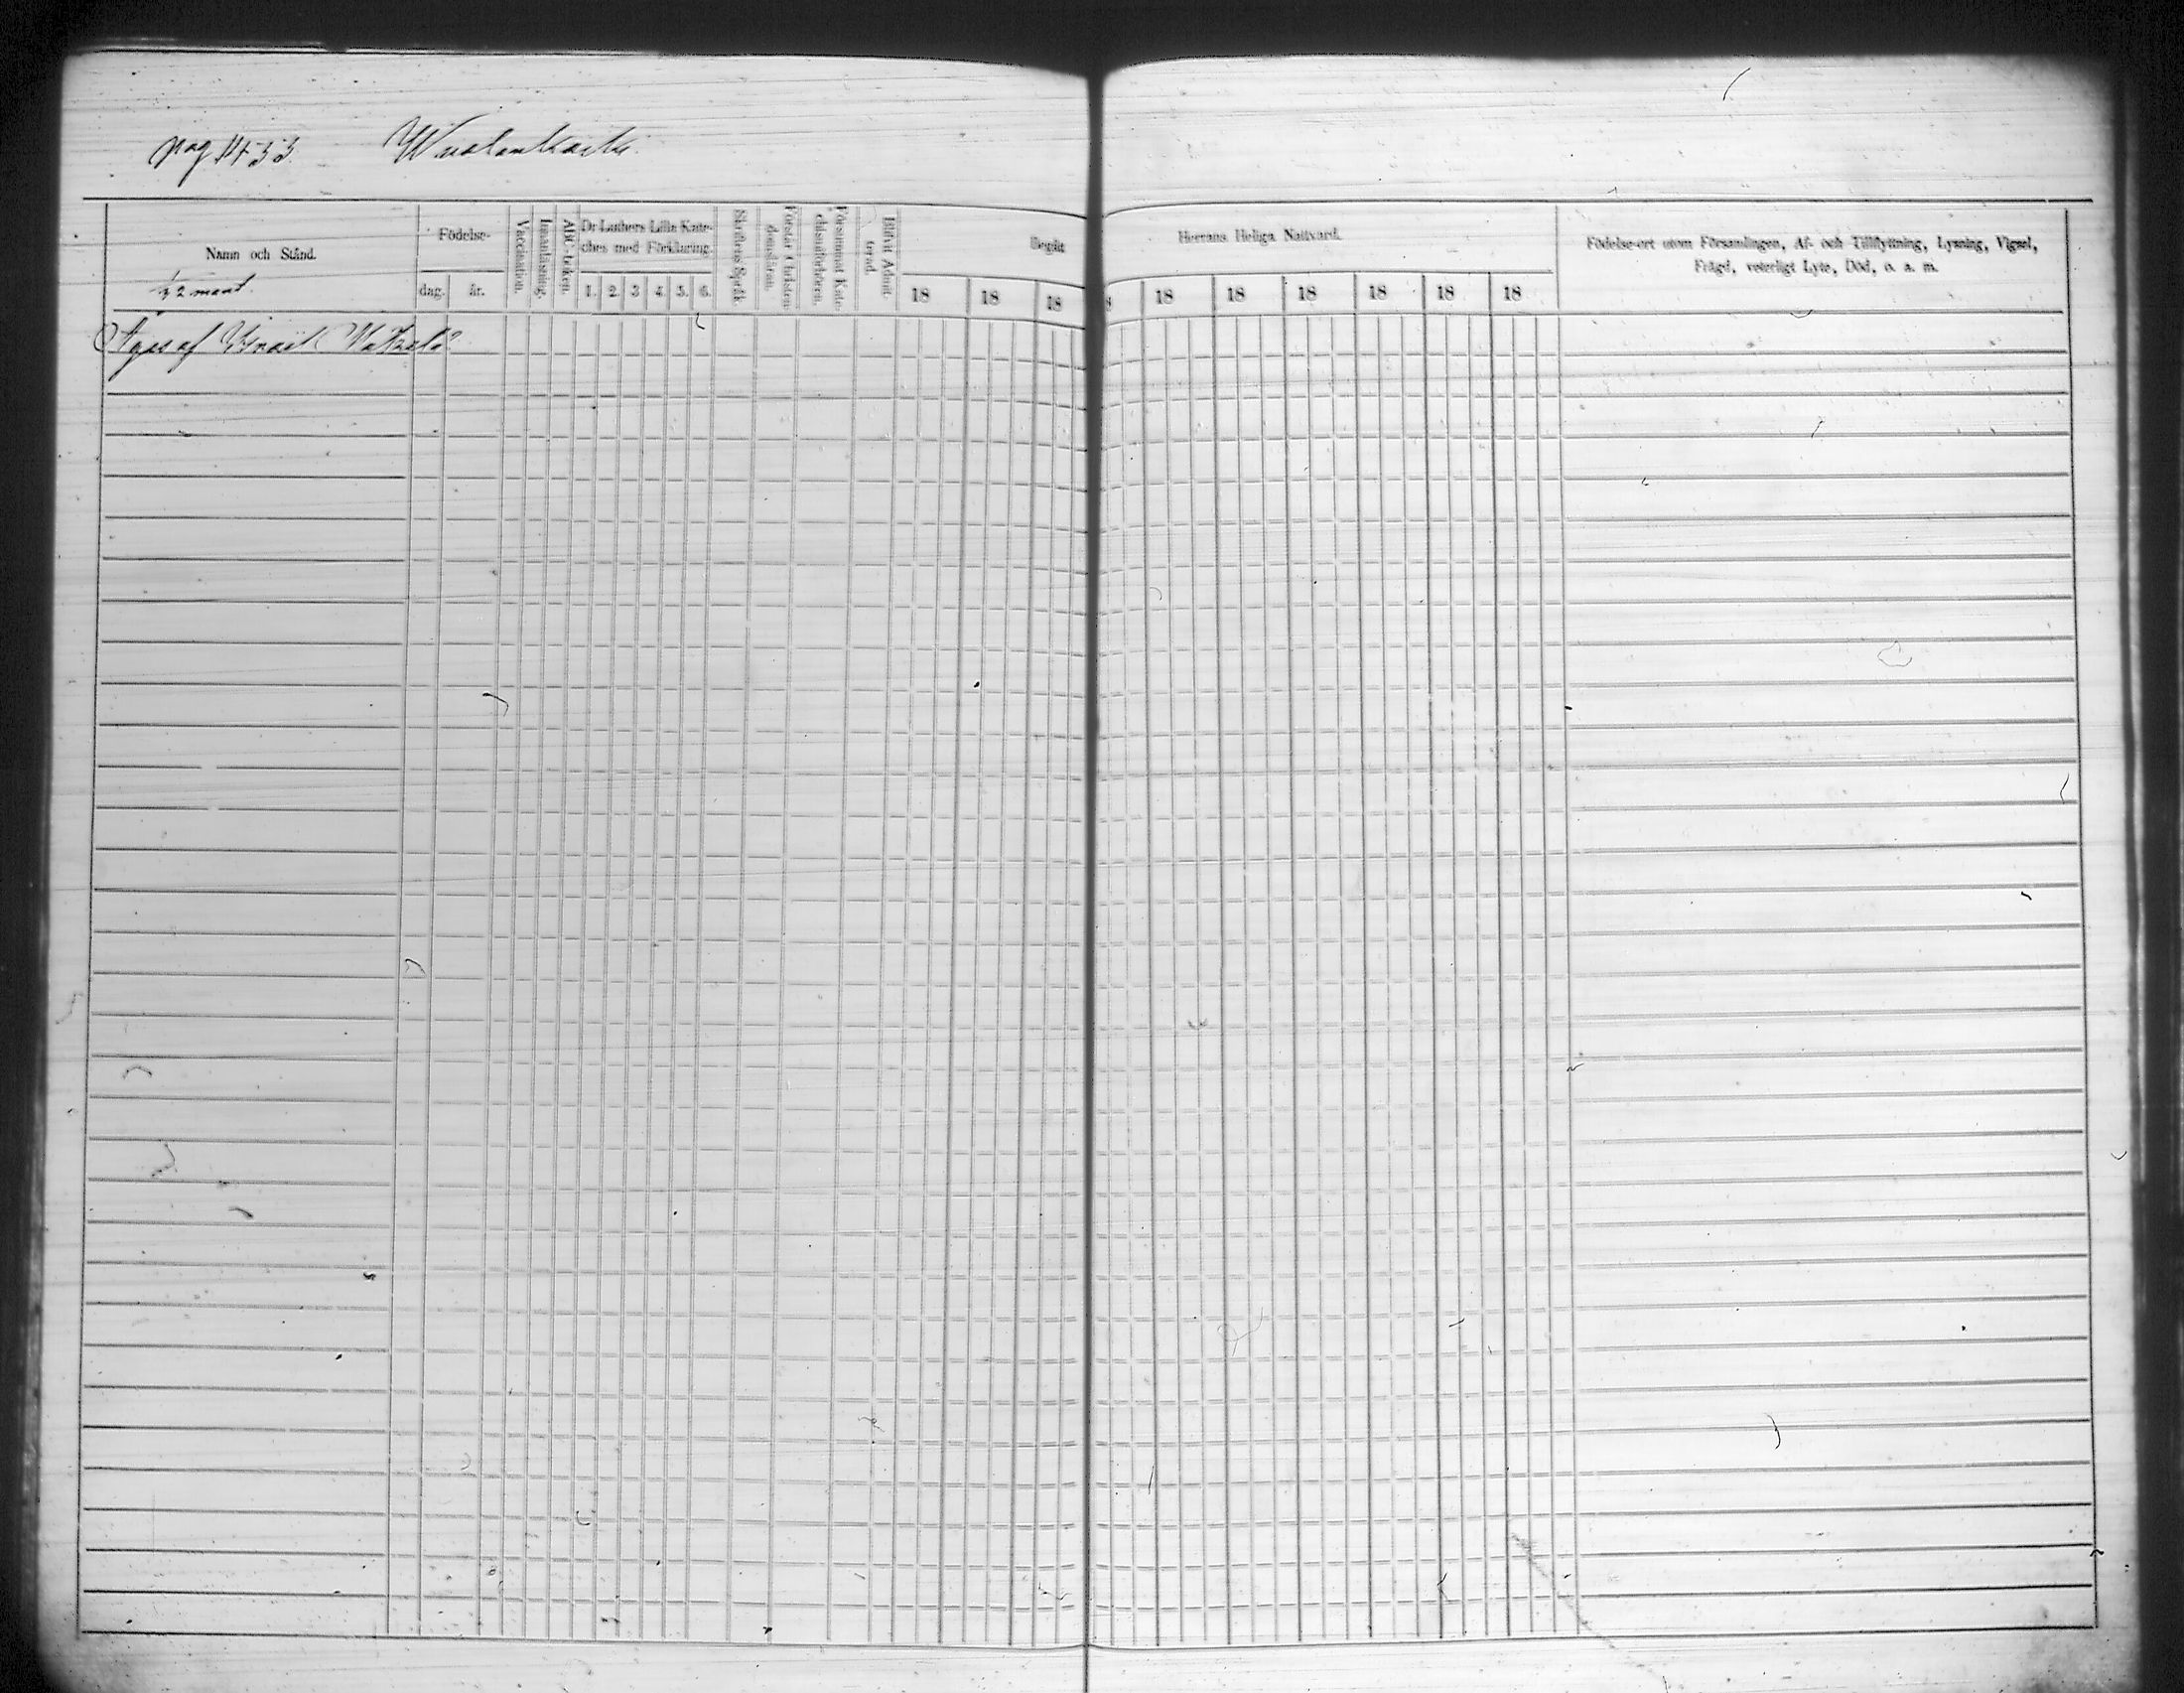 pag 1433
Födelse-
Vaccination.
Innanläsning.
ABC-boken.
Dr Luthers Lilla Kate-
ches med Förklaring.
Skriftens Språk.
Förstår Christen-
domsläran.
Försummat Kate-
chismiförhören.
Blifvit Admit-
terad.
Begått
Herrans Heliga Nattvard.
Födelse-ort utom Församlingen, Af- och Tillflyttning, Lysning, Vigsel,
Frägd, veterligt Lyte, Död, o. a. m.
Namn och Stånd.
1/2 mant.
dag. år. 1. 2. 3. 4. 5. 6. 18 18 18 18 18 18 18 18 18
Äges af